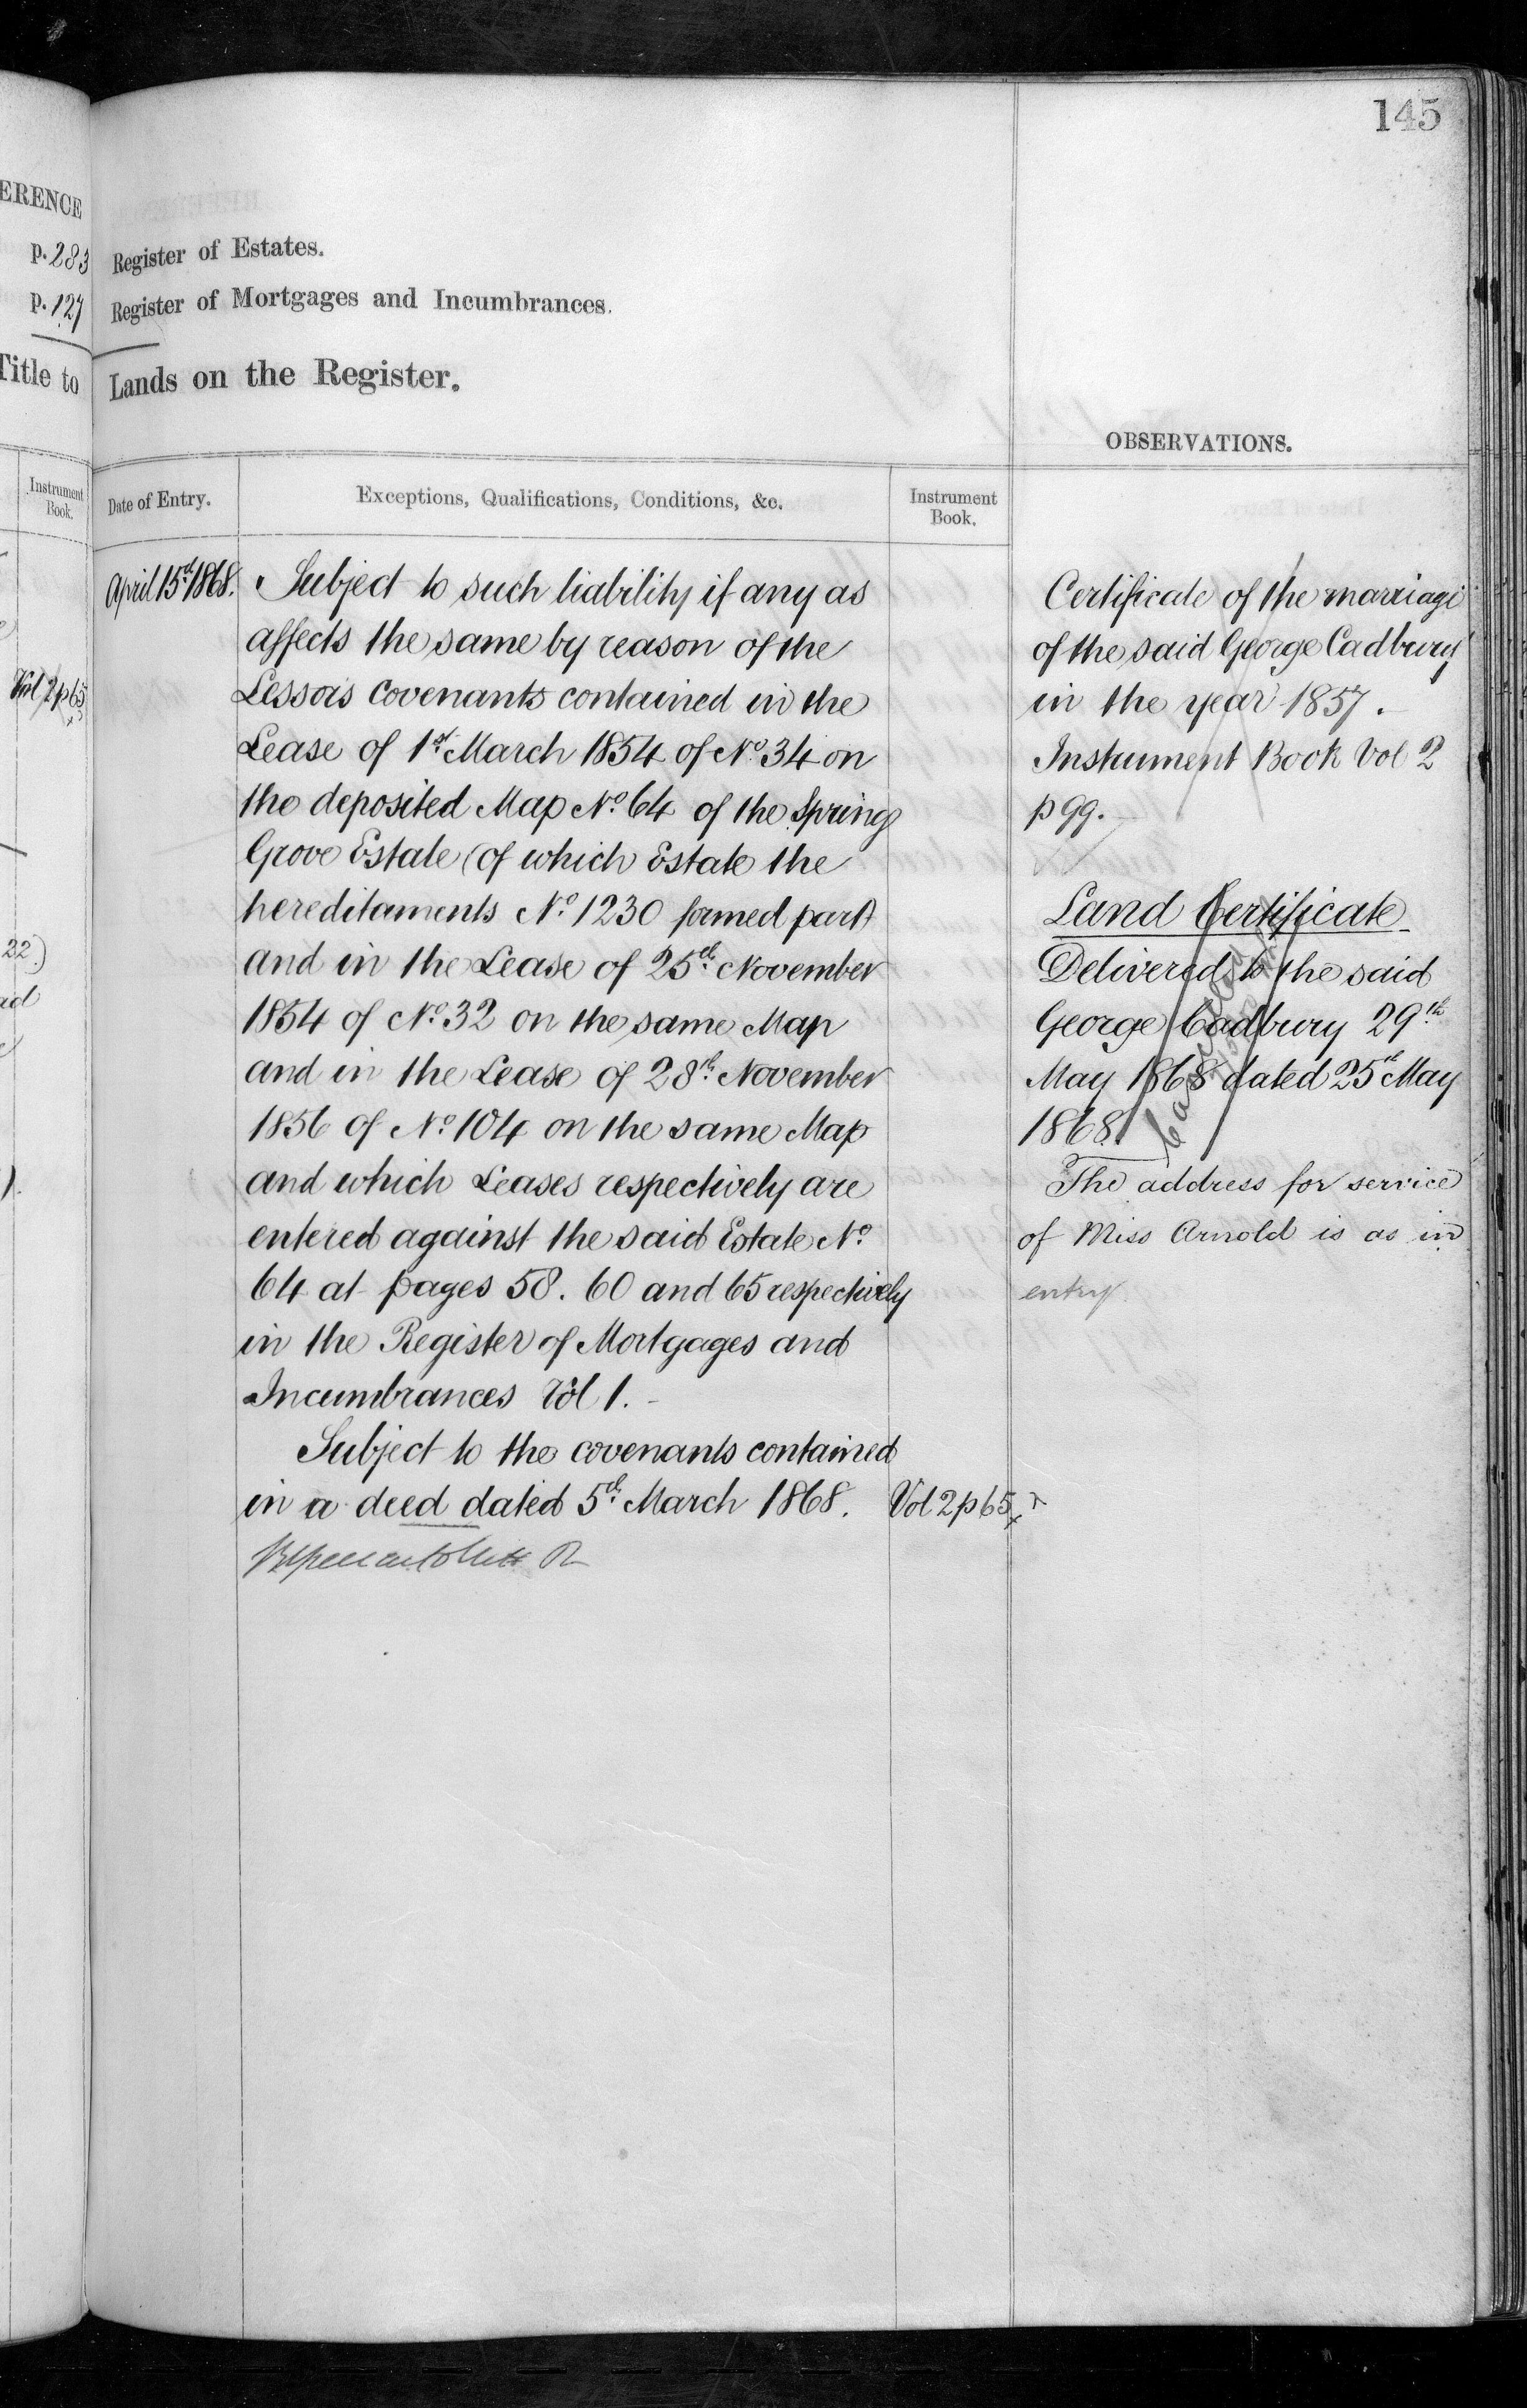 145
ERENCE
p. 283
Register of Estates.
p. 127
Register of Mortgages and Incumbrances.
Title to
Lands on the Register.
OBSERVATIONS.
Instrument
Book.
Date of Entry.
Exceptions, Qualifications, Conditions, &c.
Instrument
Book.
Vol 2 p 65
22.)
April 15th 1868.
Subject to such liability if any as
affects the same by reason of the
Lessors covenants contained in the
Lease of 1st March 1854 of No. 34 on
the deposited Map No. 64 of the Spring
Grove Estate (of which Estate the
hereditaments No. 1230 formed part
and in the Lease of 25th November
1854 of No. 32 on the same Map
and in the Lease of 28th November
1856 of No. 104 on the same Map
and which Leases respectively are
entered against the said Estate No.
64 at pages 58. 60 and 65 respectively
in the Register of Mortgages and
Incumbrances Vol 1.
Subject to the covenants contained
in a deed dated 5th March 1868.
Vol 2 p 65
Certificate of the marriage
of the said George Cadbury
in the year 1857.
Instrument Book Vol 2
p 99.
Land Certificate
Delivered to the said
George Cadbury 29th
May 1868 dated 25th May
1868.
Cancelled
The address for service
of Miss Arnold is as in
entry.